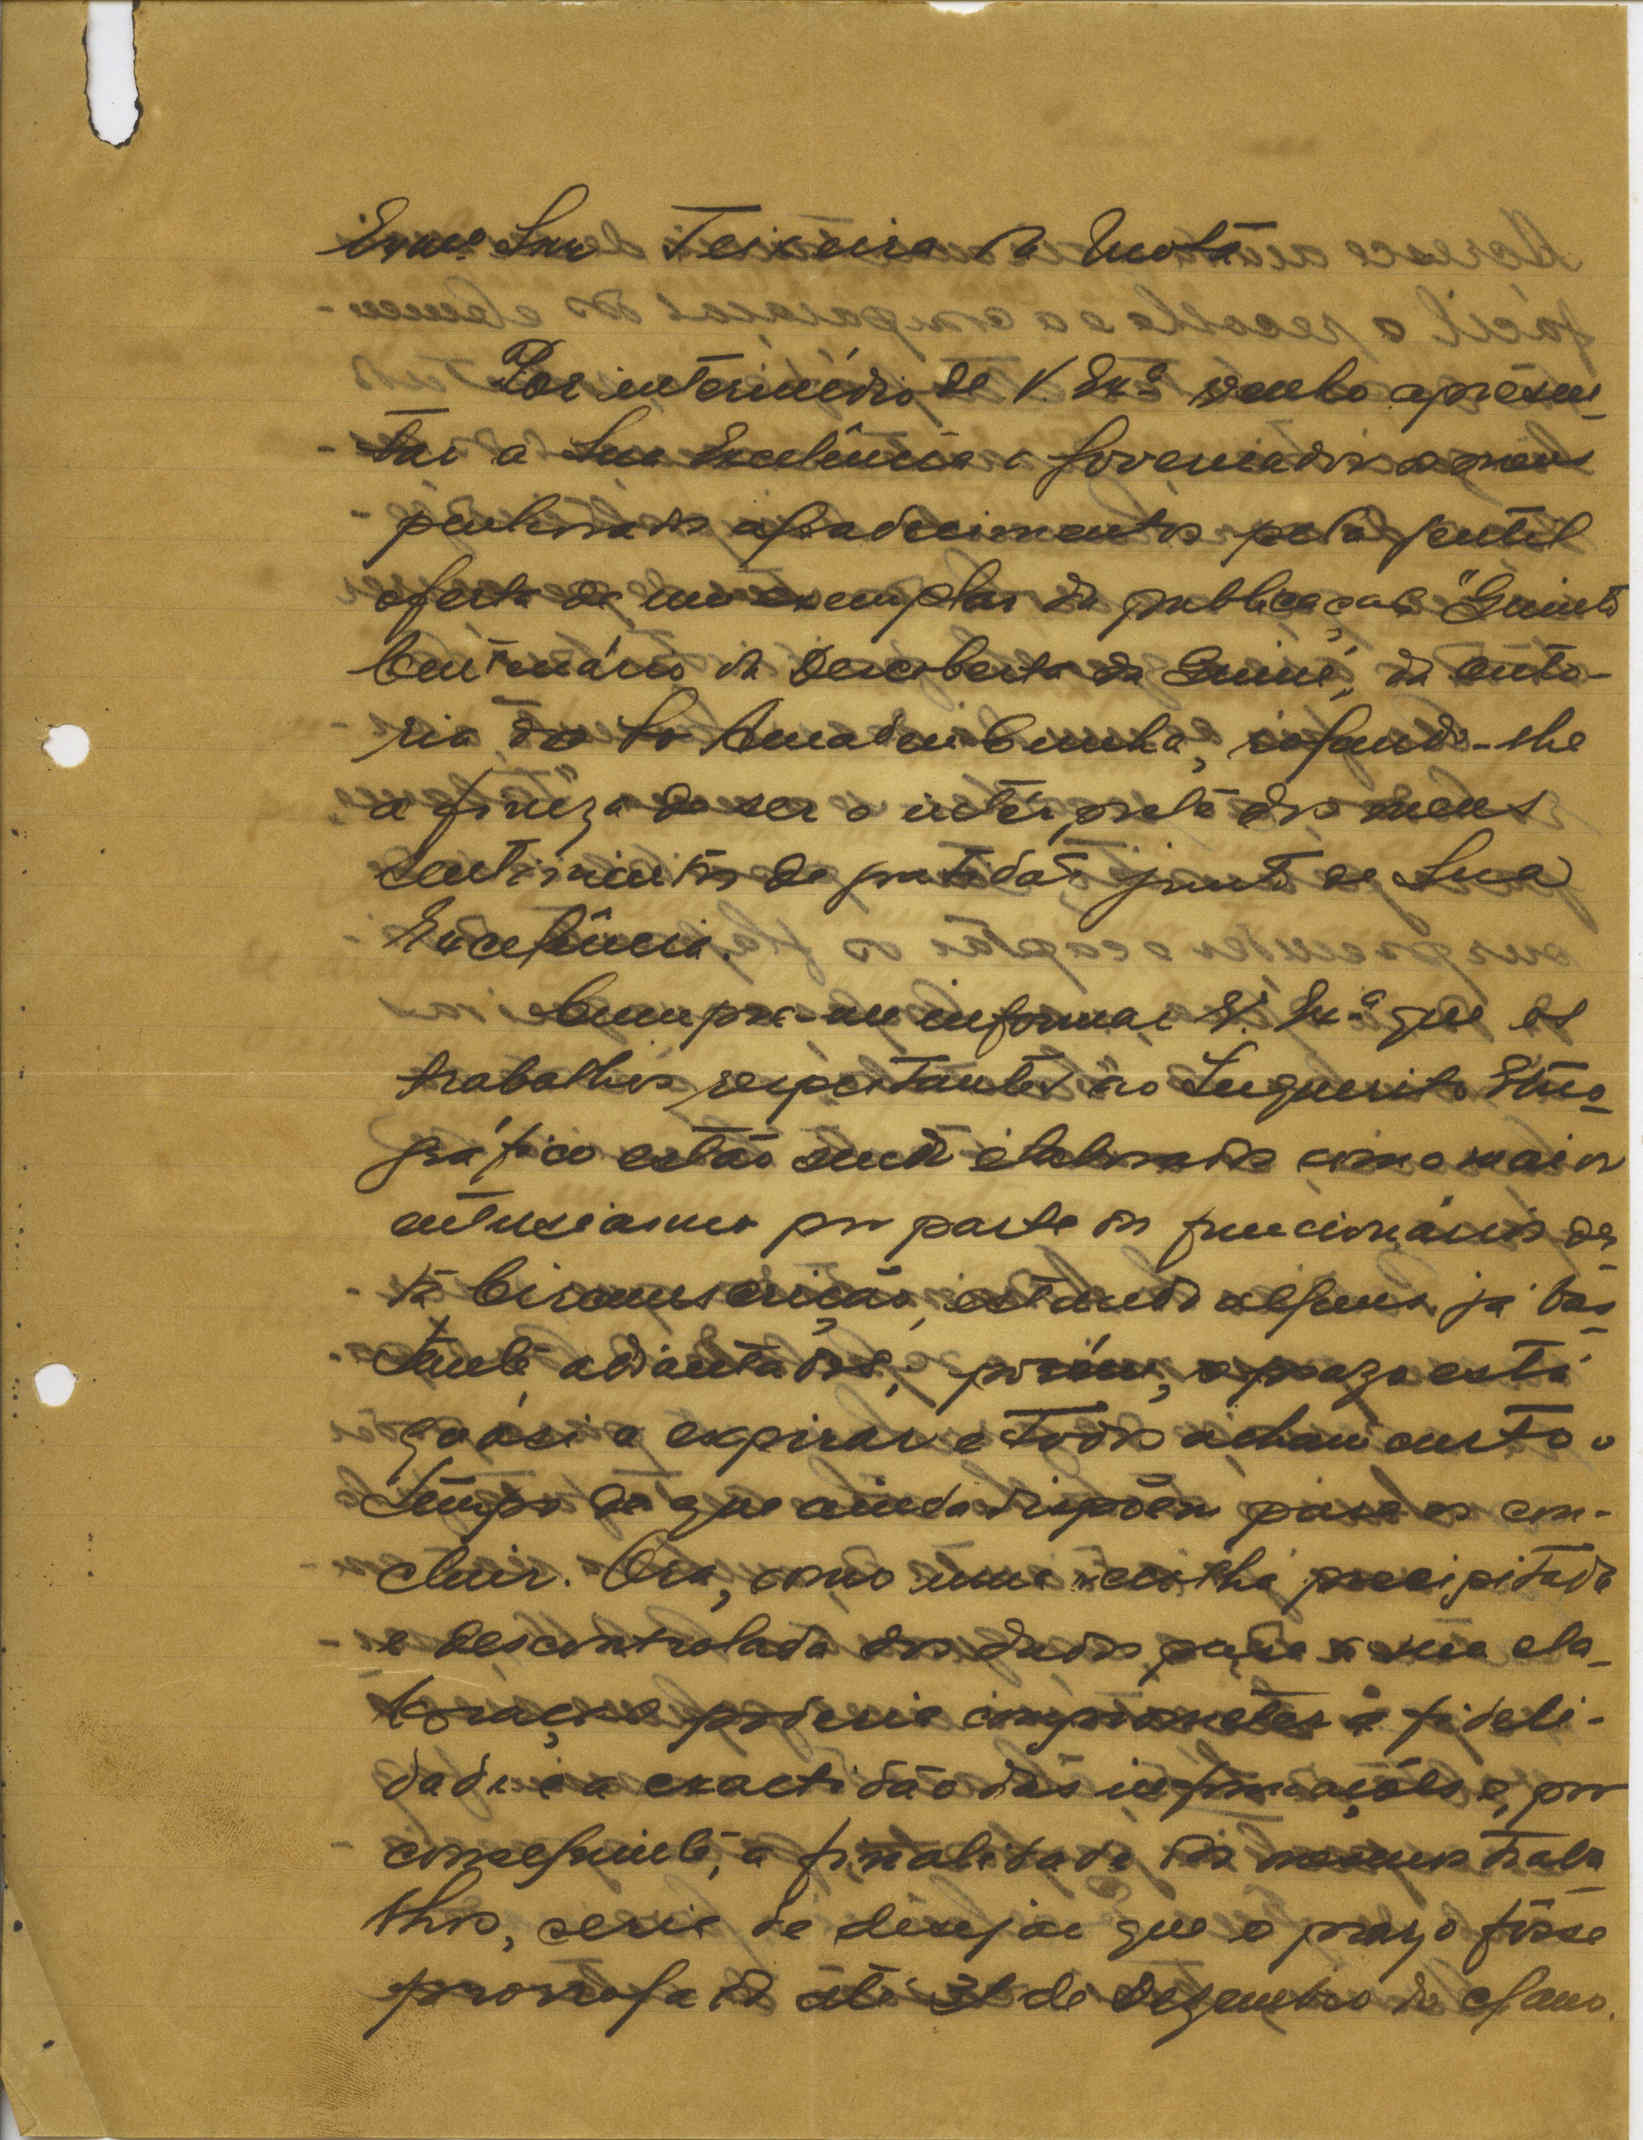 Exmo. Snr Teixeira da Mota
Por intermédio de V. Exª venho apresen-
tar a Sua Excelência o Governador os meus
penhorados agradecimentos pela gentil
oferta de um exemplar da publicação "Quinto
Centenário da Descoberta da Guiné", da auto-
ria do Sr Amadeu Cunha, rogando-lhe
a fineza de ser o intérprete dos meus
sentimentos de gratidão junto de Sua
Excelência.
Cumpre-me informar V. Exª que os
trabalhos respeitantes ao Inquerito Etno-
gráfico estão sendo elaborados com o maior
entusiasmo por parte dos funcionários des-
ta Circunscrição, estando alguns já bas-
tante adiantados; porém, o prazo está
quási a expirar e todos acham curto o
tempo de que ainda dispõem para os con-
cluir. Ora, como uma recolha precipitada
e descontrolada dos dados para a sua ela-
boração poderia comprometer a fideli-
dade e a exactidão das informações e, por
conseguinte, a finalidade dos mesmos traba
lhos, seria de desejar que o prazo fôsse
prorrogado até 31 de Dezembro do c/ano.